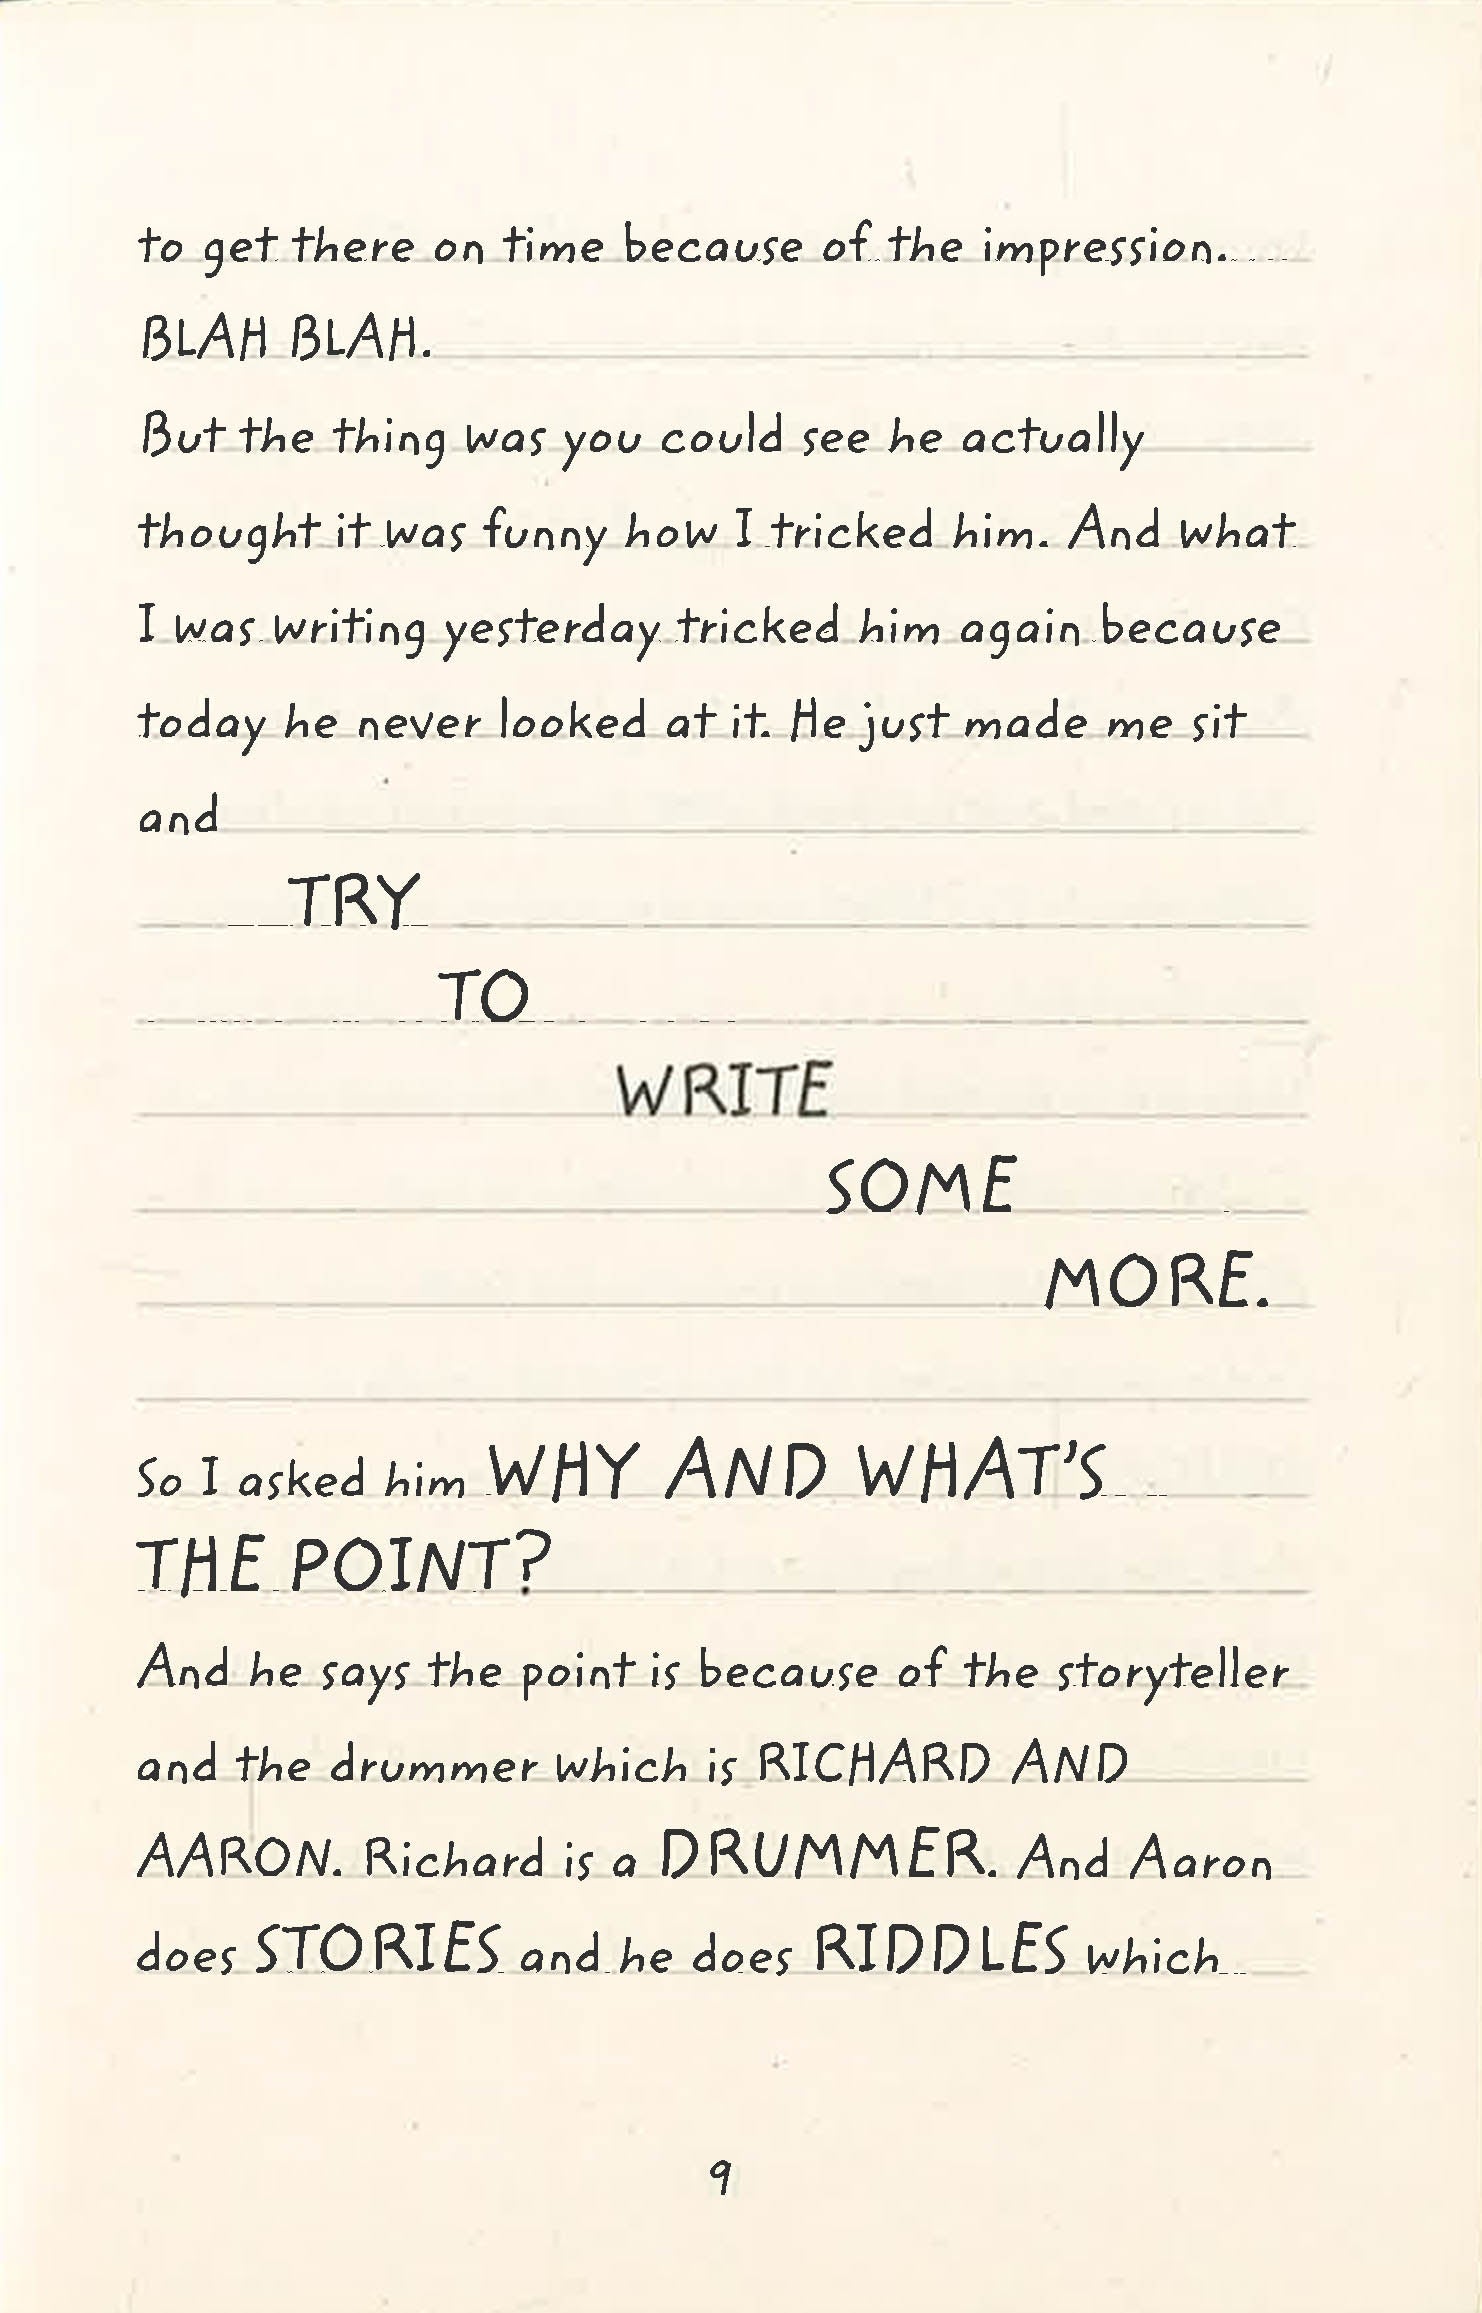 to get there on time because of the impression.
BLAH BLAH.
But the thing was you could see he actually
thought it was funny how I tricked him. And what
I was writing yesterday tricked him again because
today he never looked at it. He just made me sit
and
TRY
TO
WRITE
SOME
MORE.
So I asked him WHY AND WHAT'S
THE POINT?
And he says the point is because of the storyteller
and the drummer which is RICHARD AND
AARON. Richard is a DRUMMER. And Aaron
does STORIES and he does RIDDLES which
9